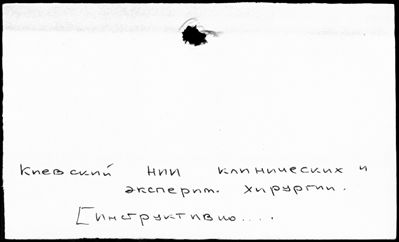 Киевский НИИ клинических и
эксперим. хирургии.
[Инструктивно....